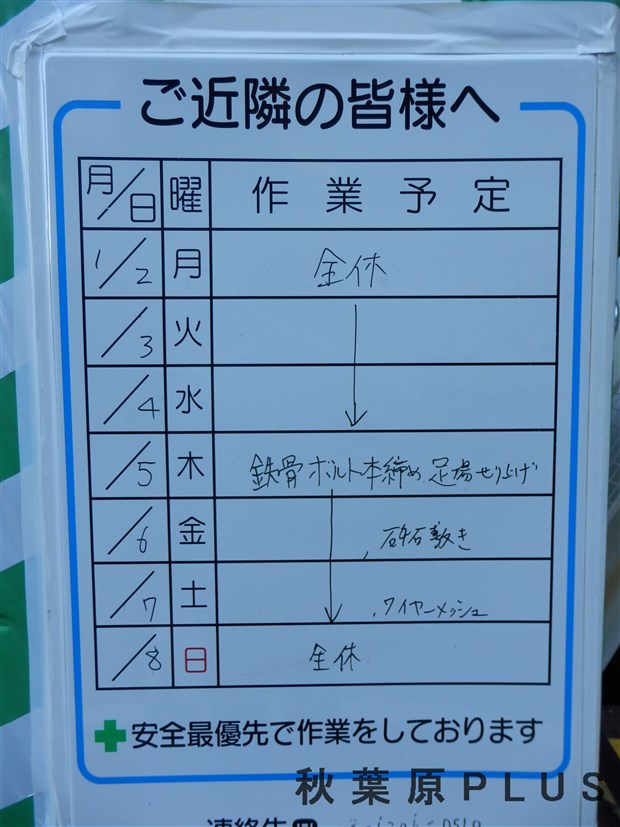 ご近隣の皆様へ
月/日 曜 作業予定
1/2 月 全休
/3 火
/4 水
/5 木 鉄骨ボルト本締め、足場せり上げ
/6 金 、砕石敷き
/7 土 、ワイヤーメッシュ
/8 日 全休
安全最優先で作業をしております
秋葉原PLUS
連絡先